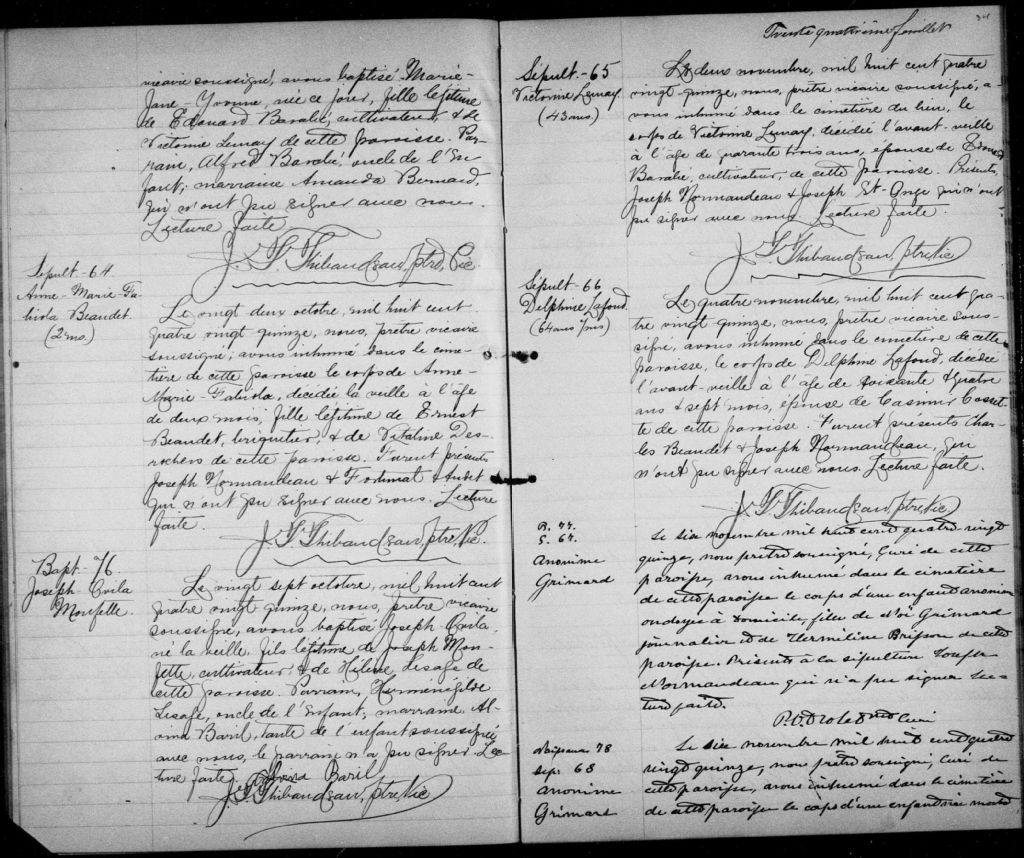 vicaire soussigné, avons baptisé Marie-
Jane-Yvonne, née ce jour, fille légitime
de Edouard Baralié, cultivateur, & de
Victorine Lemay de cette paroisse. Par-
rain, Alfred Baralié, oncle de l'en
fant; marraine Amanda Bernard,
qui n'ont pu signer avec nous.
Lecture faite.
J. S. Thibaudeau, ptre, Vic.
Sépult-64
Anne-Marie-Fa-
biola Beaudet.
(2 ms.)
Le vingt deux octobre, mil huit cent
quatre vingt quinze, nous, prêtre vicaire
soussigné, avons inhumé dans le cime-
tière de cette paroisse le corps de Anne-
Marie-Fabiola, décédée la veille à l'âge
de deux mois, fille légitime de Ernest
Beaudet, briquetier, & de Vitaline Des-
rochers de cette paroisse. Furent présents
Joseph Normandeau & Fortunat Audet
qui n'ont pu signer avec nous. Lecture
faite.
J. S. Thibaudeau, ptre, Vic.
Bapt-76.
Joseph Ovila
Monfette.
Le vingt sept octobre, mil huit cent
quatre vingt quinze, nous, prêtre vicaire
soussigné, avons baptisé Joseph-Ovila,
né la veille, fils légitime de Joseph Mon-
fette, cultivateur, & de Hélène Lesage de
cette paroisse. Parrain, Herménégilde
Lesage, oncle de l'enfant; marraine, Al-
vina Baril, tante de l'enfant soussignée
avec nous, le parrain n'a pu signer. Lec-
ture faite.
Alvina Baril
J. S. Thibaudeau, ptre, Vic
Trente quatrième feuillet
34
Sépult-65
Victorine Lemay.
(43 ans)
Le deux novembre, mil huit cent quatre
vingt quinze, nous, prêtre vicaire soussigné, a-
vons inhumé dans le cimetière du lieu, le
corps de Victorine Lemay, décédée l'avant-veille
à l'âge de quarante trois ans, épouse de Edouard
Baralié, cultivateur, de cette paroisse. Présents,
Joseph Normandeau & Joseph St-Onge qui n'ont
pu signer avec nous. Lecture faite.
J. S. Thibaudeau, ptre, Vic
Sépult-66
Delphine Lafond.
(64 ans 7 ms)
Le quatre novembre, mil huit cent qua-
tre vingt quinze, nous, prêtre vicaire sous-
signé, avons inhumé dans le cimetière de cette
paroisse, le corps de Delphine Lafond, décédée
l'avant-veille à l'âge de soixante & quatre
ans & sept mois, épouse de Casimir Cosset-
te de cette paroisse. Furent présents Char-
les Beaudet & Joseph Normandeau, qui
n'ont pu signer avec nous. Lecture faite.
J. S. Thibaudeau, ptre, Vic
B. 77.
S. 67.
Anonime
Grimard
Le six novembre mil huit cent quatre vingt
quinze, nous prêtre soussigné, Curé de cette
paroisse, avons inhumé dans le cimetière
de cette paroisse le corps d'un enfant anonime
ondoyé à domicile, fils de Noé Grimard
journalier et de Hermeline Brisson de cette
paroisse. Présents à la sépulture Joseph
Normandeau qui n'a pu signer. Lec-
ture faite.
P. O. Drolet Ptre Curé
78
Sep. 68
anonime
Grimard
Le six novembre mil huit cent quatre
vingt quinze, nous prêtre soussigné, Curé de
cette paroisse, avons inhumé dans le cimetière
de cette paroisse le corps d'un enfant né mort